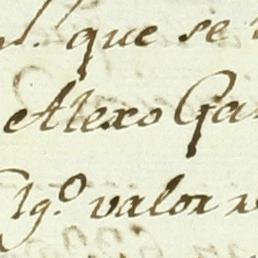 que se
Alexo Ga
lg.º valor